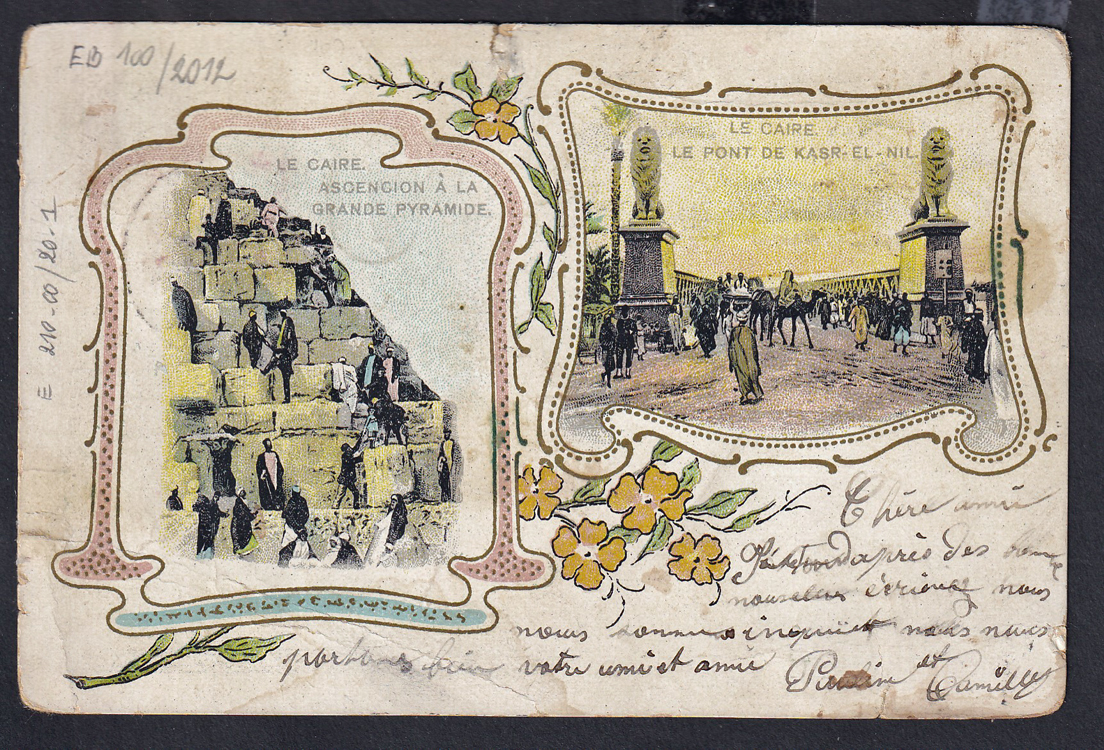 EB 100/2012
E 210-00/20-1
LE CAIRE.
ASCENCION À LA
GRANDE PYRAMIDE.
LE CAIRE.
LE PONT DE KASR-EL-NIL.
Chère amie
d'après des
nouvelles écrivez nous
nous somme inquiet nous nous
portons bien votre ami et amie
Pauline et Camille